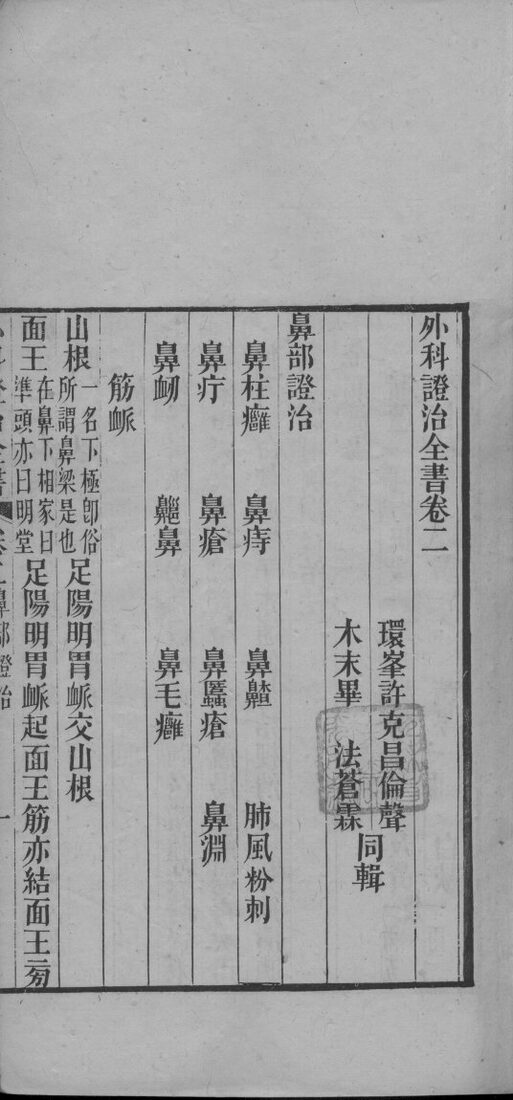 外科證治全書卷二
環峯許克昌倫聲
木末畢　法蒼霖
同輯
鼻部證治
鼻柱癰　鼻痔　鼻齄　肺風粉刺
鼻疔　鼻瘡　鼻䘌瘡　鼻淵
鼻衂　齆鼻　鼻毛癰
筋脈
山根一名下極卽俗所謂鼻梁是也足陽明胃脈交山根
面王在鼻下相家曰準頭亦曰明堂足陽明胃脈起面王筋亦結面王
鼻部證治　一